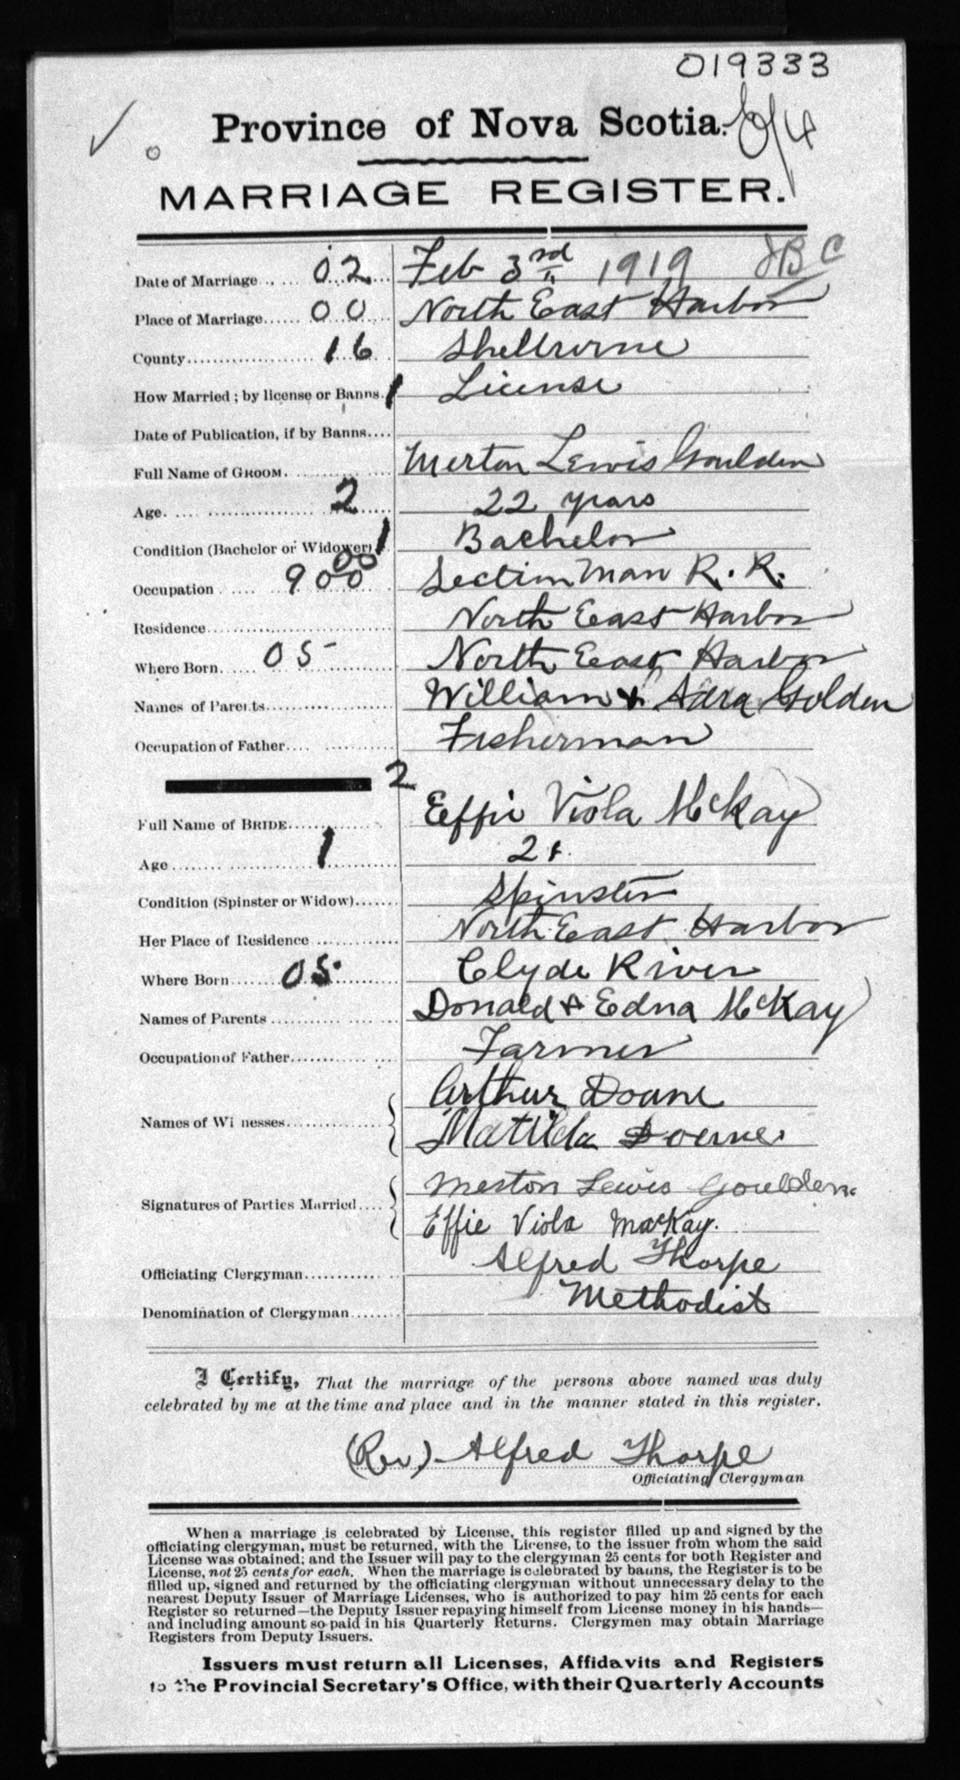 019333
Province of Nova Scotia.
MARRIAGE REGISTER.
Date of Marriage 02 Feb 3rd 1919 JBC
Place of Marriage 00 North East Harbor
County 16 Shelburne
How Married; by license or Banns. 1 License
Date of Publication, if by Banns
Full Name of GROOM Merton Lewis Goulden
Age 2 22 years
Condition (Bachelor or Widower) 1 Bachelor
00
Occupation 900 Section Man R. R.
Residence North East Harbor
Where Born 05 North East Harbor
Names of Parents William & Sara Golden
Occupation of Father Fisherman
2
Full Name of BRIDE Effie Viola McKay
Age 1 21
Condition (Spinster or Widow) Spinster
Her Place of Residence North East Harbor
Where Born 05 Clyde River
Names of Parents Donald & Edna McKay
Occupation of Father Farmer
Arthur Doane
Names of Witnesses
Matilda Doane
Merton Lewis Goulden.
Signatures of Parties Married
Effie Viola MacKay.
Officiating Clergyman Alfred Thorpe
Denomination of Clergyman Methodist
I Certify, That the marriage of the persons above named was duly
celebrated by me at the time and place and in the manner stated in this register.
(Rev) Alfred Thorpe
Officiating Clergyman
When a marriage is celebrated by License, this register filled up and signed by the
officiating clergyman, must be returned, with the License, to the issuer from whom the said
License was obtained; and the Issuer will pay to the clergyman 25 cents for both Register and
License, not 25 cents for each. When the marriage is celebrated by banns, the Register is to be
filled up, signed and returned by the officiating clergyman without unnecessary delay to the
nearest Deputy Issuer of Marriage Licenses, who is authorized to pay him 25 cents for each
Register so returned—the Deputy Issuer repaying himself from License money in his hands—
and including amount so paid in his Quarterly Returns. Clergymen may obtain Marriage
Registers from Deputy Issuers.
Issuers must return all Licenses, Affidavits and Registers
to the Provincial Secretary's Office, with their Quarterly Accounts